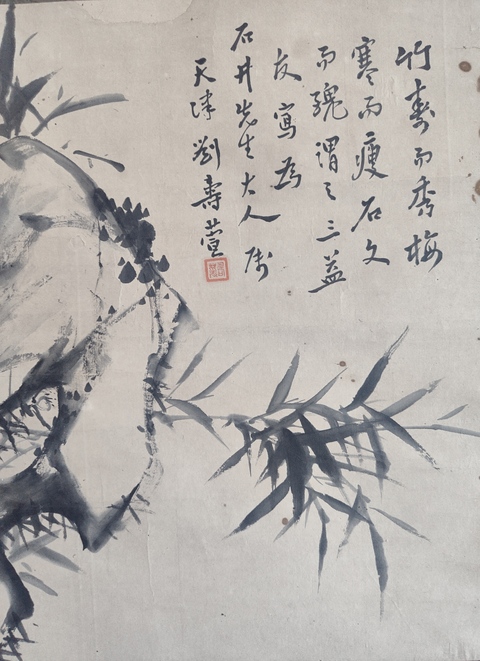 竹壽而秀梅
寒而瘦石文
而醜謂之三益
友寫為
石井先生大人属
天津劉壽萱